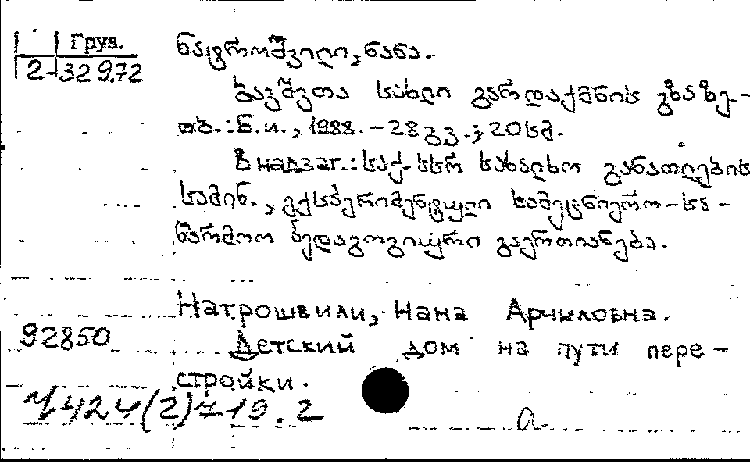 Груз.
2-32972
ნატროშვილი, ნანა.
ბავშვთა სახლი გარდაქმნის გზაზე.-
თბ.: Б.и., 1988.-28 გვ.; 20 სმ.
В надзаг.: საქ. სსრ სახალხო განათლების
სამინ., ექსპერიმენტული სამეცნიერო-სა-
წარმოო პედაგოგიური გაერთიანება.
Натрошвили, Нана Арчиловна.
92850
Детский дом на пути пере-
стройки.
Ч424(2)719.2
а